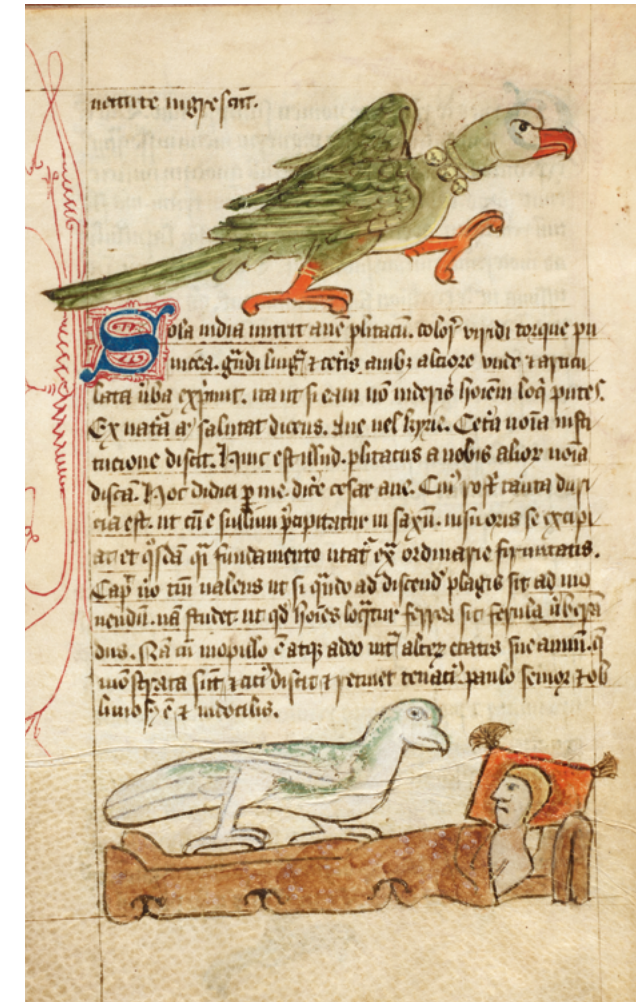 uetute nigrescũt.
Sola india mittit auẽ psitacũ. colorẽ viridi torque pu
nicea. gñdi linḡ ⁊ cet̃is auibꝫ alciore vnde ⁊ articu
lata ũba exp̃mit. ita ut si eam nõ uideris hoiem loq̃ putes.
Ex nat̃a aũ salutat dicens. aue uel kyrie. Cet̃a noĩa insti
tucione discit. Hinc est illud. psitacus a uobis alior noĩa
discã. Hoc didici p me. dicẽ cesar aue. Cuiꝰ rostr̃ tanta duri
cia est. ut cũ e sullimi p̃cipitatur in saxũ. nisu oris se excipi
at et qõdã q̃i fundamento utat᷑ exordinarie firmitatis.
Cap̃ uõ tm̃ ualens ut si qñdo ad discend̃ plagis sit ad mo
nendũ. nã studet ut qd̃ hoĩes loq̃tur ferrea sit ferula ũberã
dus. Nã cũ in pullo ẽ atqꝫ adeo int᷑ alter̃ etatis sue annũ. q̃
mõstrata sũt ⁊ citiꝰ discit ⁊ retinet tenaciꝰ. paulo senior ⁊ ob
liuiosꝰ ẽ ⁊ indocilis.